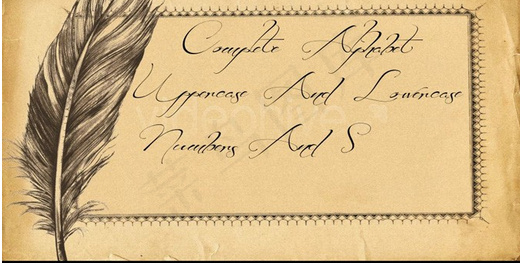 Complete Alphabet
Uppercase And Lowercase
Numbers And S